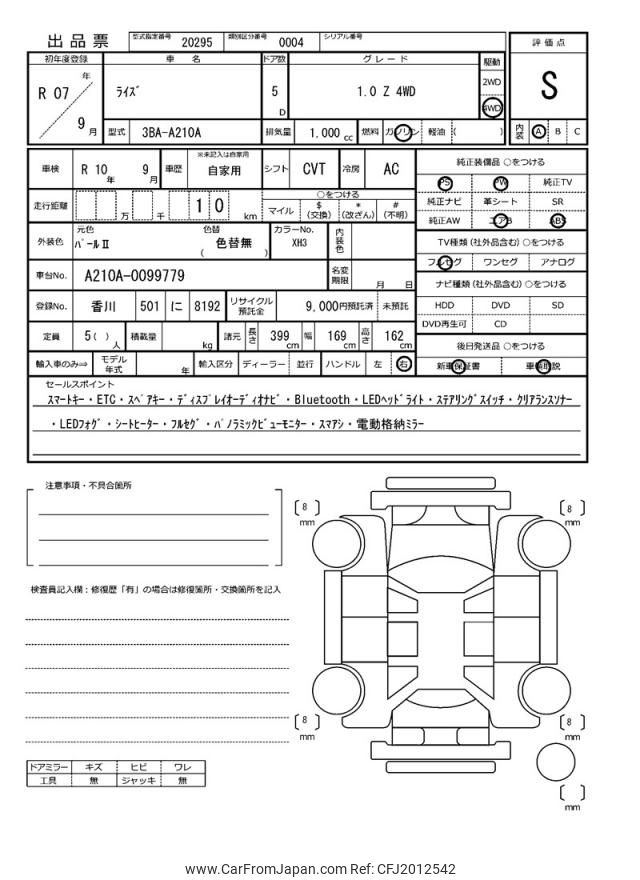 出品票
型式指定番号 20295 類別区分番号 0004 シリアル番号
評価点
初年度登録 車名 ドア数 グレード 駆動
R 07 年 9 月
ﾗｲｽﾞ
5 D
1.0 Z 4WD
2WD
4WD
S
型式 3BA-A210A 排気量 1.000 cc 燃料 ガソリン 軽油 ( )
内装 A B C
車検 R 10 年 9 月 車歴 ※未記入は自家用 自家用 シフト CVT 冷房 AC
純正装備品 ○をつける
PS PW 純正TV
純正ナビ 革シート SR
純正AW エアB ABS
走行距離 万 千 1 0 km
○をつける
マイル $ (交換) * (改ざん) # (不明)
TV種類 (社外品含む) ○をつける
フルセグ ワンセグ アナログ
外装色 元色 ﾊﾟｰﾙⅡ 色替 ( 色替無 ) カラーNo. XH3 内装色
車台No. A210A-0099779 名変期限 月 日
ナビ種類 (社外品含む) ○をつける
HDD DVD SD
DVD再生可 CD
登録No. 香川 501 に 8192 リサイクル預託金 9,000円預託済 未預託
定員 5 ( ) 人 積載量 kg 諸元 長さ 399 cm 幅 169 cm 高さ 162 cm
後日発送品 ○をつける
新車保証書 車輌取説
輸入車のみ⇒ モデル年式 年 輸入区分 ディーラー 並行 ハンドル 左 右
セールスポイント
ｽﾏｰﾄｷｰ・ETC・ｽﾍﾟｱｷｰ・ﾃﾞｨｽﾌﾟﾚｲｵｰﾃﾞｨｵﾅﾋﾞ・Bluetooth・LEDﾍｯﾄﾞﾗｲﾄ・ｽﾃｱﾘﾝｸﾞｽｲｯﾁ・ｸﾘｱﾗﾝｽｿﾅｰ
・LEDﾌｫｸﾞ・ｼｰﾄﾋｰﾀｰ・ﾌﾙｾｸﾞ・ﾊﾟﾉﾗﾐｯｸﾋﾞｭｰﾓﾆﾀｰ・ｽﾏｱｼ・電動格納ﾐﾗｰ
注意事項・不具合箇所
[ 8 ] mm
[ 8 ] mm
検査員記入欄：修復歴「有」の場合は修復箇所・交換箇所を記入
[ 8 ] mm
[ 8 ] mm
ドアミラー キズ ヒビ ワレ
工具 無 ジャッキ 無
[ ] mm
www.CarFromJapan.com Ref: CFJ2012542